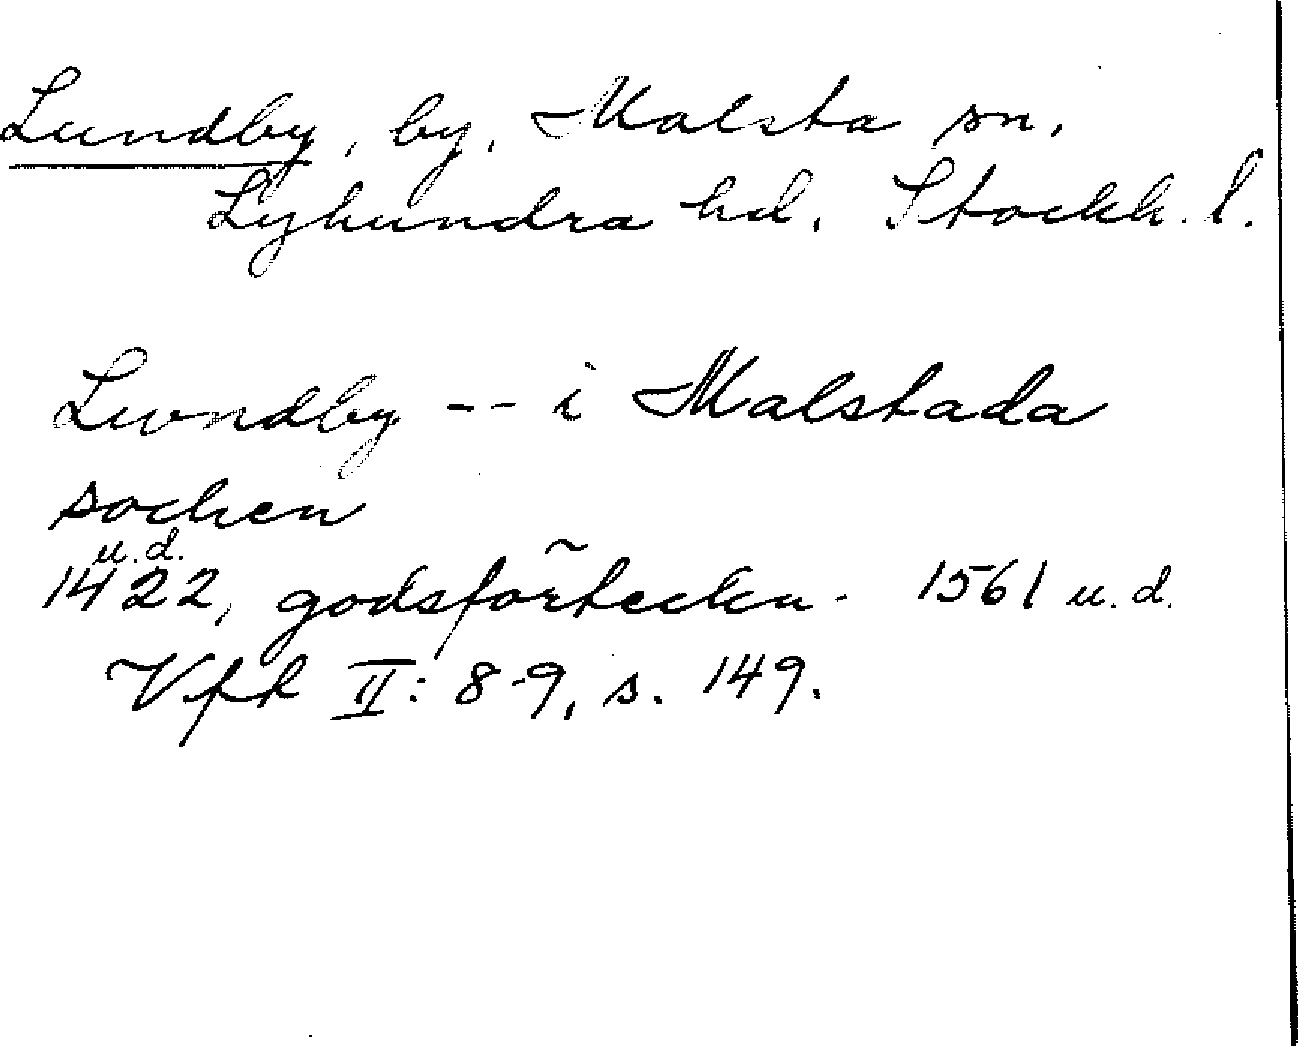 Lundby, by, Malsta sn,
Lyhundra hd, Stockh. l.
Lwndby -- i Malstada
sochen
u.d.
1422, godsförteckn. 1561 u.d.
Vfk II: 8-9, s. 149.